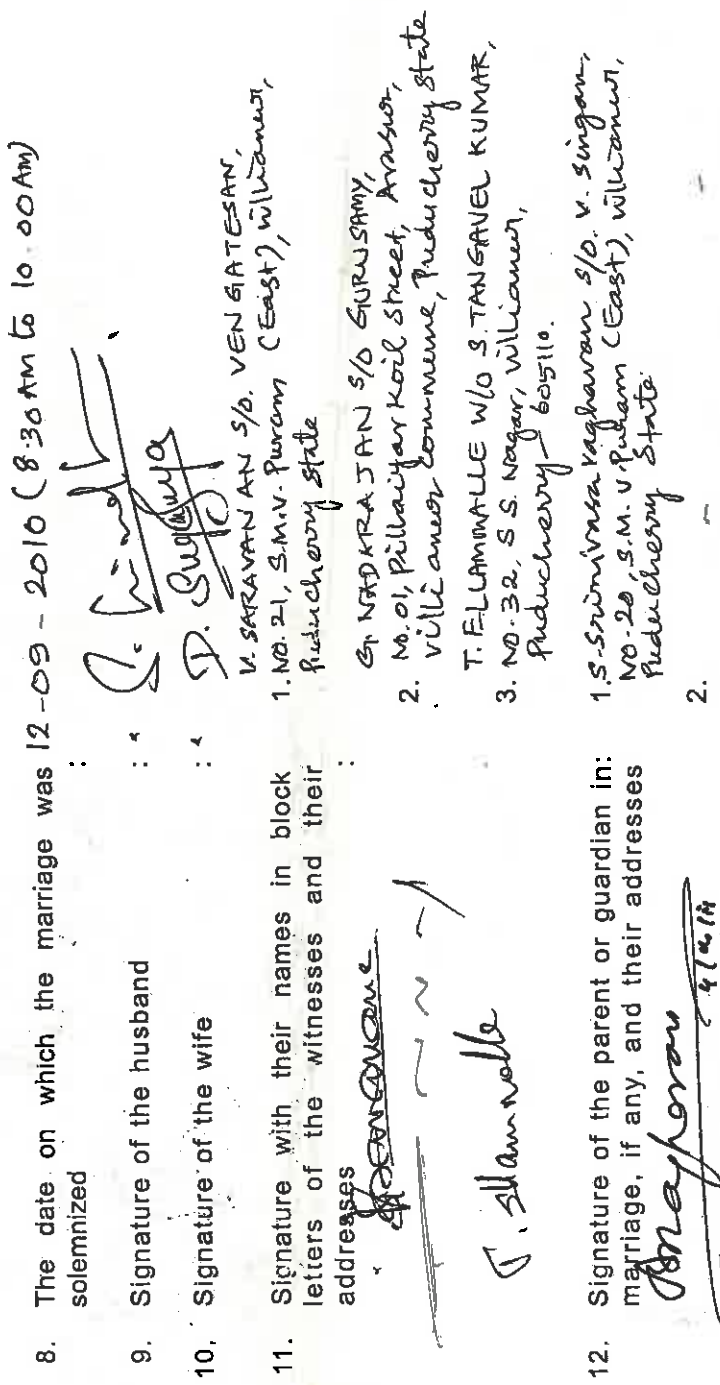 8. The date on which the marriage was 12-09-2010 (8.30 AM to 10.00 AM)
solemnized :
9. Signature of the husband :
10. Signature of the wife : P. Suganya
11. Signature with their names in block
letters of the witnesses and their
addresses :
V. SARAVANAN S/O. VENGATESAN,
1. NO. 21, S.M.V. Puram (East), Villianur,
Puducherry State
G. NADARAJAN S/O GURUSAMY,
2. No. 01, Pillaiyar Koil Street, Arasur,
Villianeor Commune, Puducherry State
T. ELLAMMALLE W/O S. TANGAVEL KUMAR,
3. NO. 32, S S. Nagar, Villianur,
Puducherry - 605110.
T. Ellammalle
12. Signature of the parent or guardian in:
marriage, if any, and their addresses
1. S. Srinivasa raghavan S/O. V. Singam,
NO-20, S.M.V. Puram (East), Villianur,
Puducherry State
2.